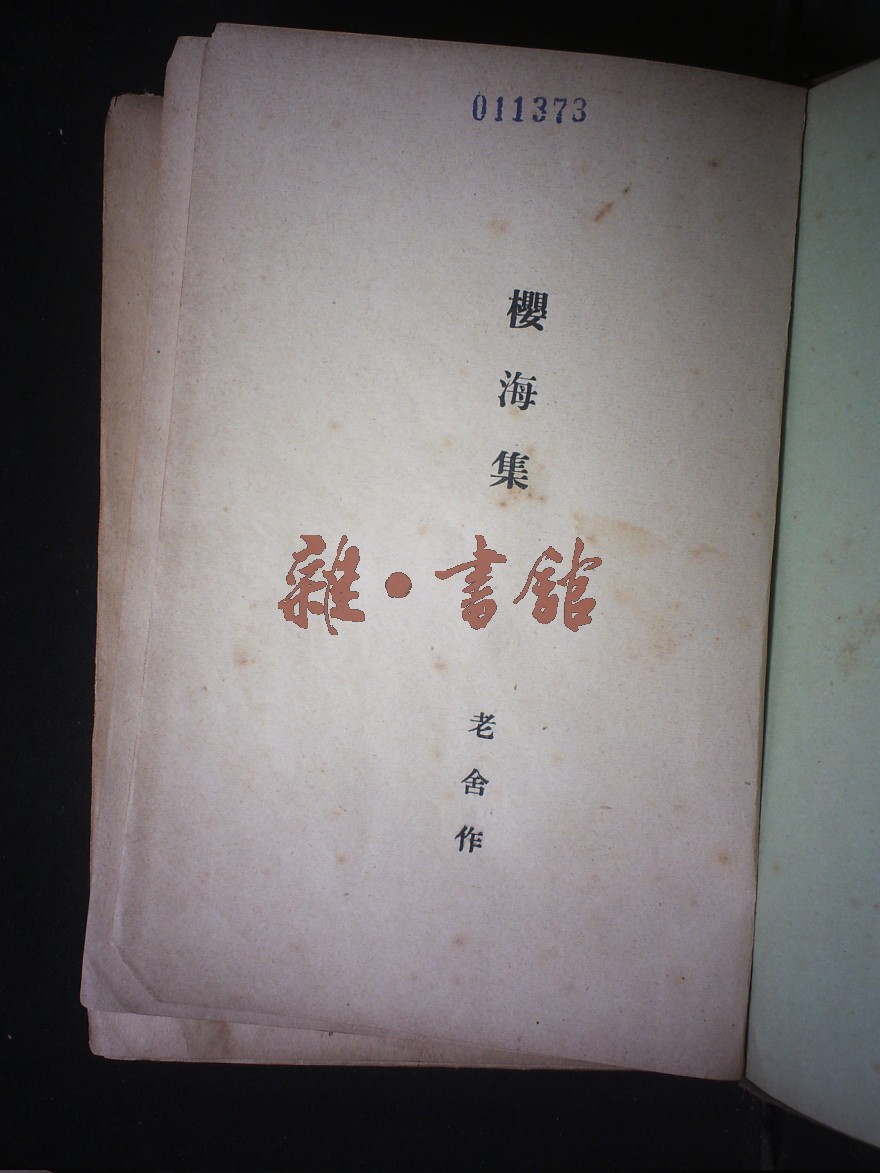 011373
櫻海集
雜·書館
老舍作